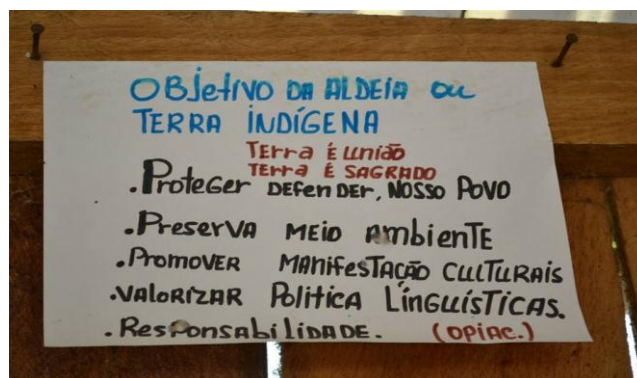 OBJetivo DA ALDEIA ou
TERRA İNDÍGENA
Terra É união
Terra É SAGRADO
.Proteger DEFenDer, NOSSO POVO
.PreserVA MEIO AmbienTE
.PromOVER MAnifesTAÇÃO CULTURAIS
.VALORIZAR Politica LínguísTicas.
.ResponsabiLiDADE. (OPIAC.)